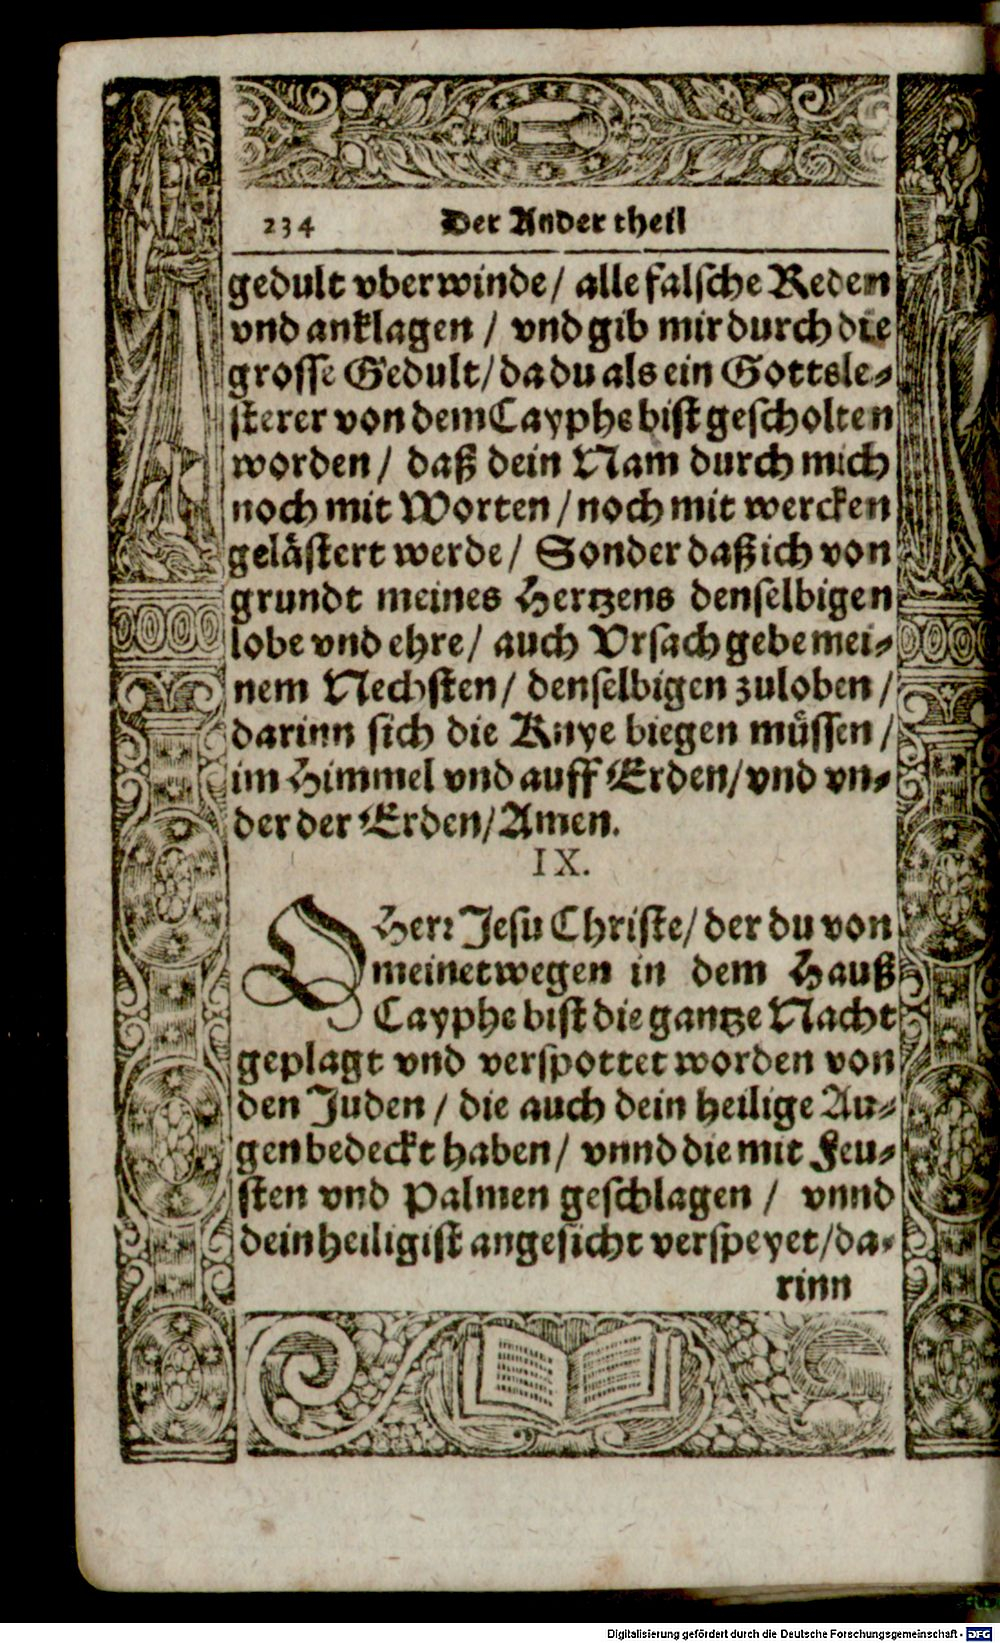 234 Der Ander theil
gedult vberwinde/ alle falsche Reden
vnd anklagen / vnd gib mir durch die
grosse Gedult/ da du als ein Gottsle⸗
sterer von dem Cayphe bist gescholten
worden / daß dein Nam durch mich
noch mit Worten / noch mit wercken
gelästert werde / Sonder daß ich von
grundt meines Hertzens denselbigen
lobe vnd ehre / auch Vrsach gebe mei⸗
nem Nechsten / denselbigen zuloben /
darinn sich die Knye biegen müssen /
im Himmel vnd auff Erden/ vnd vn⸗
der der Erden/ Amen.
IX.
O Herr Jesu Christe/ der du von
meinetwegen in dem Hauß
Cayphe bist die gantze Nacht
geplagt vnd verspottet worden von
den Juden / die auch dein heilige Au⸗
gen bedeckt haben / vnnd die mit Feu⸗
sten vnd Palmen geschlagen / vnnd
dein heiligist angesicht verspeyet/ da⸗
rinn
Digitalisierung gefördert durch die Deutsche Forschungsgemeinschaft - DFG